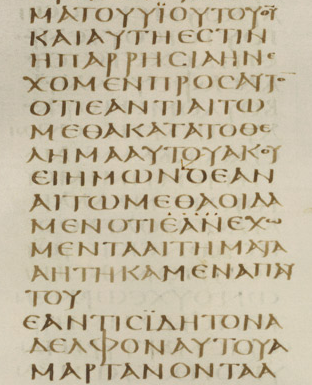 ΜΑΤΟΥΥΪΟΥΤΟΥΘΥ
ΚΑΙΑΥΤΗΕϹΤΙΝ
ΗΠΑΡΡΗϹΙΑΗΝΕ
ΧΟΜΕΝΠΡΟϹΑΥΤΟ
ΟΤΙΕΑΝΤΙΑΙΤΩ
ΜΕΘΑΚΑΤΑΤΟΘΕ
ΛΗΜΑΑΥΤΟΥΑΚΟΥ
ΕΙΗΜΩΝΟΕΑΝ
ΑΙΤΩΜΕΘΑΟΙΔΑ
ΜΕΝΟΤΙΕΑΝΕΧΩ
ΜΕΝΤΑΑΙΤΗΜΑΤΑ
ΑΗΤΗΚΑΜΕΝΑΠΑΥ
ΤΟΥ
ΕΑΝΤΙϹΪΔΗΤΟΝΑ
ΔΕΛΦΟΝΑΥΤΟΥΑ
ΜΑΡΤΑΝΟΝΤΑΑ